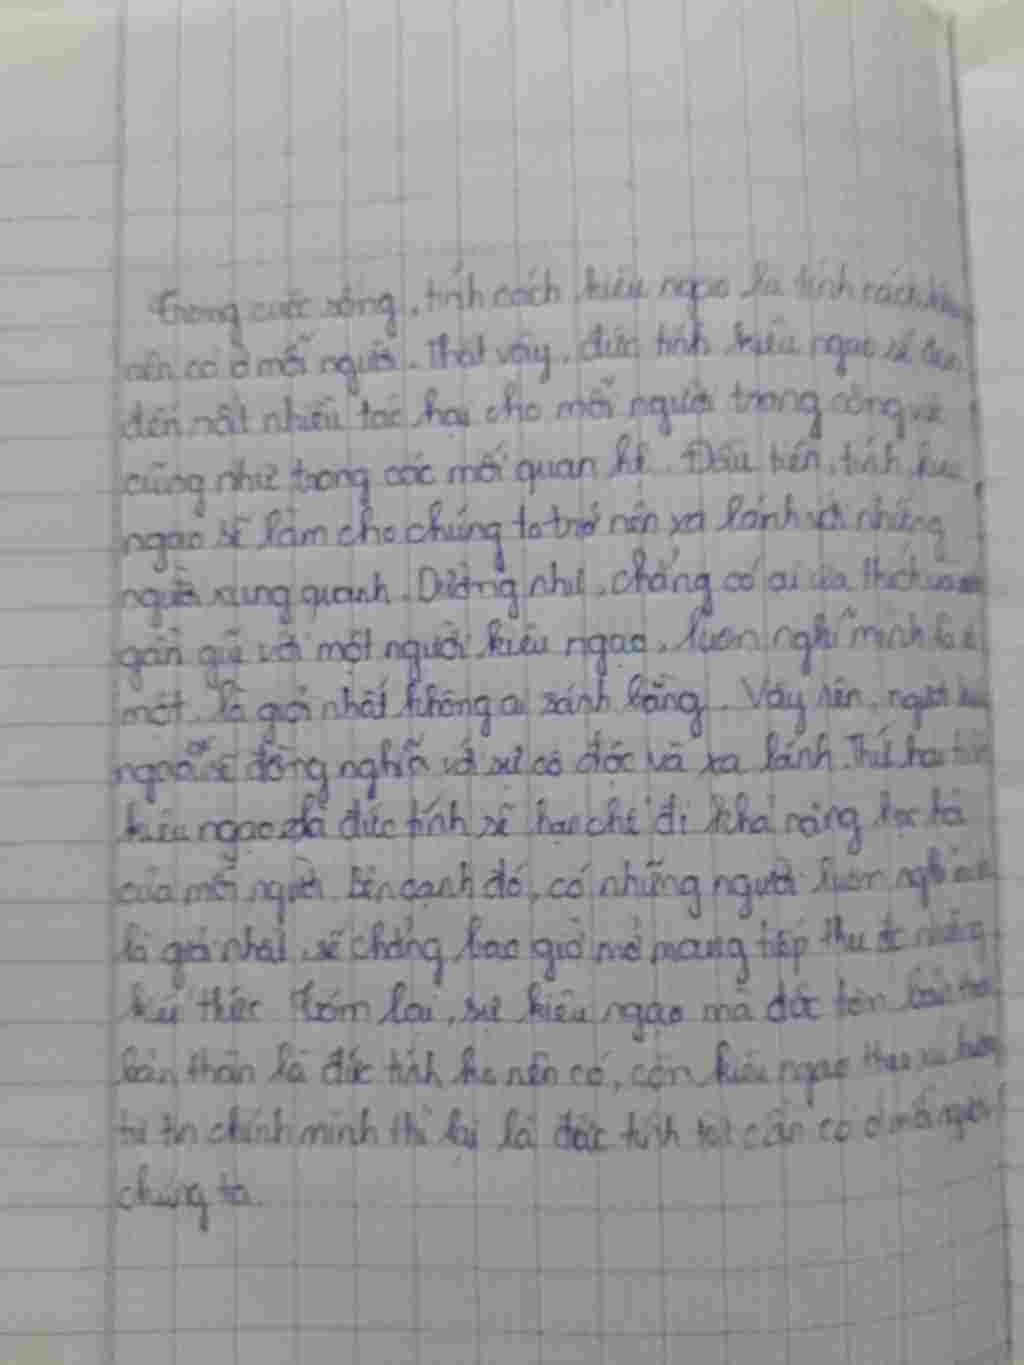 Trong cuộc sống, tính cách kiêu ngạo là tính cách
nên có ở mỗi người. Thật vậy, đức tính kiêu ngạo sẽ
đến rất nhiều tác hại cho mỗi người trong công
cũng như trong các mối quan hệ. Đầu tiên, tính kiêu
ngạo sẽ làm cho chúng ta trở nên xa lánh với những
người xung quanh. Dường như, chẳng có ai ưa thích
gần gũi với một người kiêu ngạo, luôn nghĩ mình là
một, là giỏi nhất không ai sánh bằng. Vậy nên, người
ngạo sẽ đồng nghĩa với sự cô độc và xa lánh. Thứ hai
kiêu ngạo là đức tính sẽ hạn chế đi khả năng học
của mỗi người. Bên cạnh đó, có những người luôn nghĩ
là giỏi nhất, sẽ chẳng bao giờ mở mang tiếp thu những
Tóm lại, sự kiêu ngạo mà
bản thân là đức tính nên có, còn kiêu ngạo theo
tự tin chính mình thì lại là đức tính tốt cần có ở mỗi người
chúng ta.